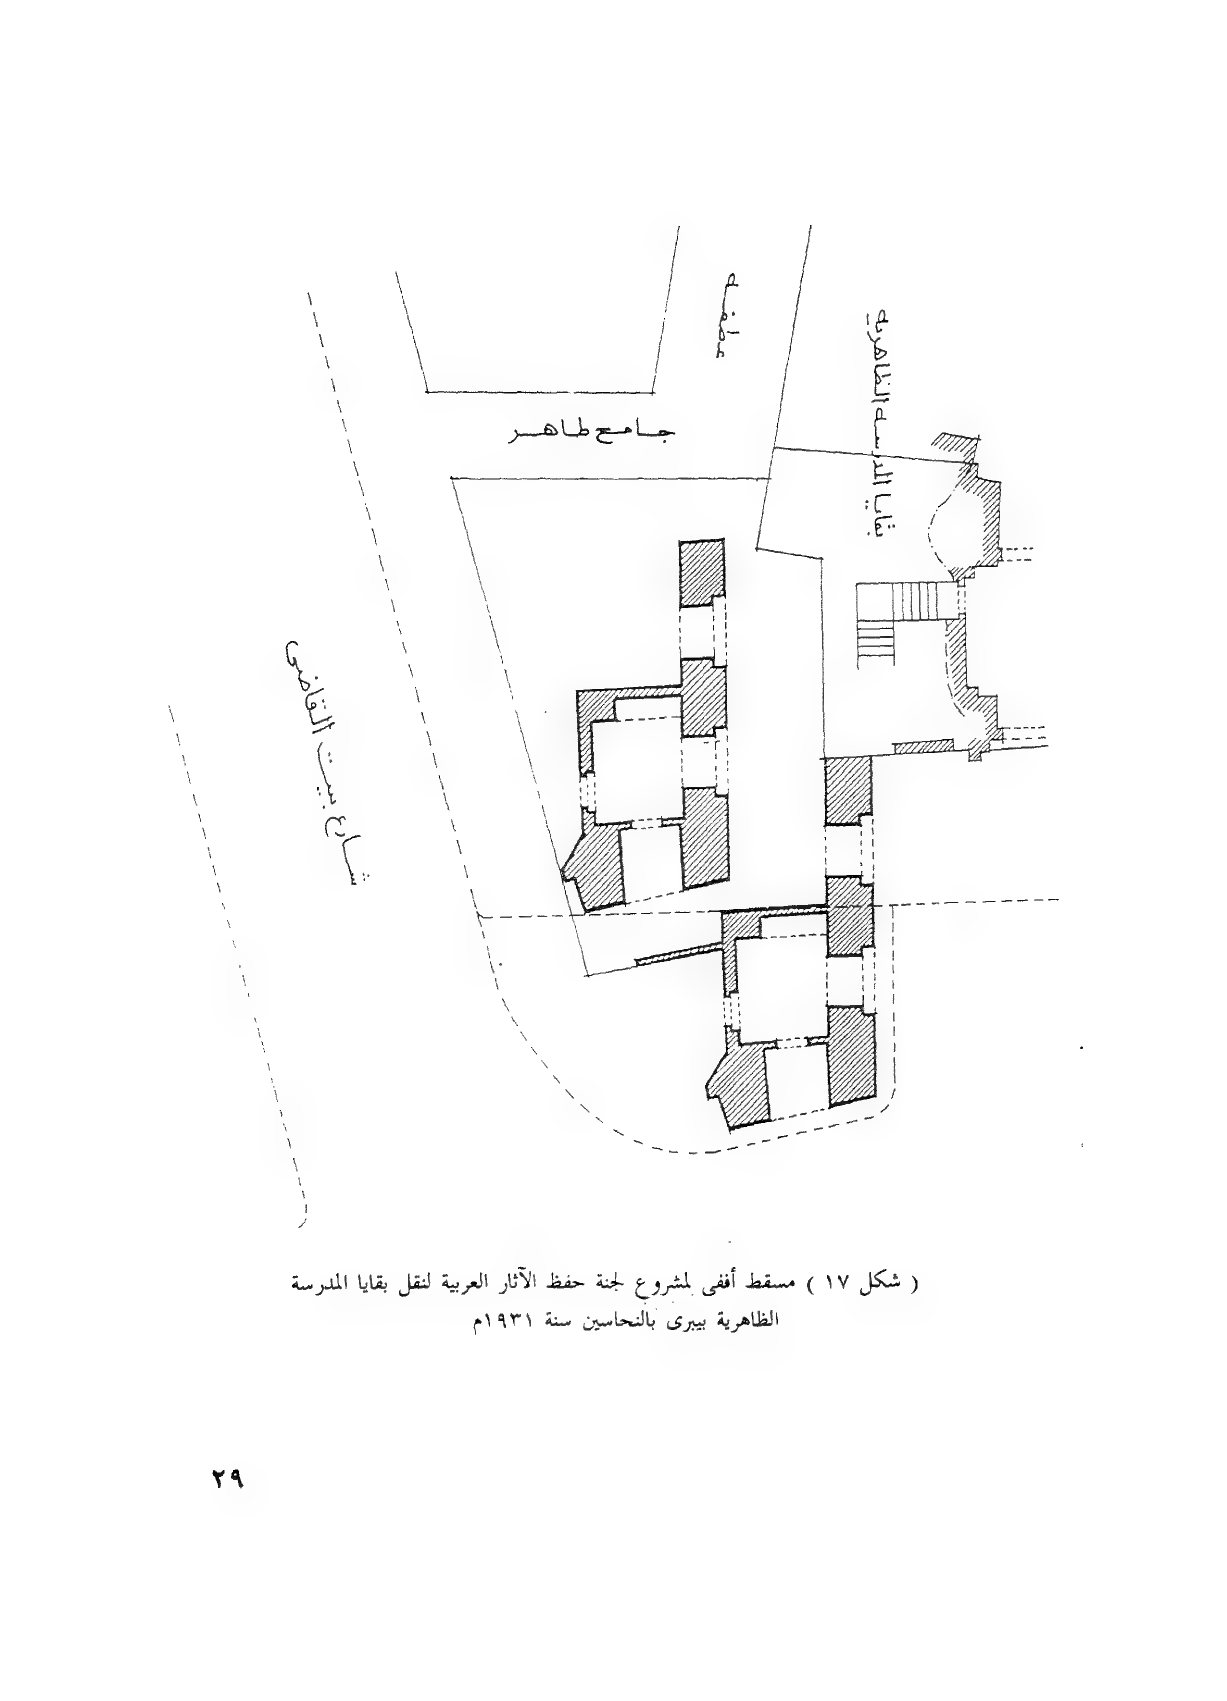 عطفه
بقايا المدرسه الظاهريه
جامع طاهر
شارع بيت القاضى
( شكل ١٧ ) مسقط أفقى لمشروع لجنة حفظ الآثار العربية لنقل بقايا المدرسة
الظاهرية بيبرى بالنحاسين سنة ١٩٣١م
٢٩